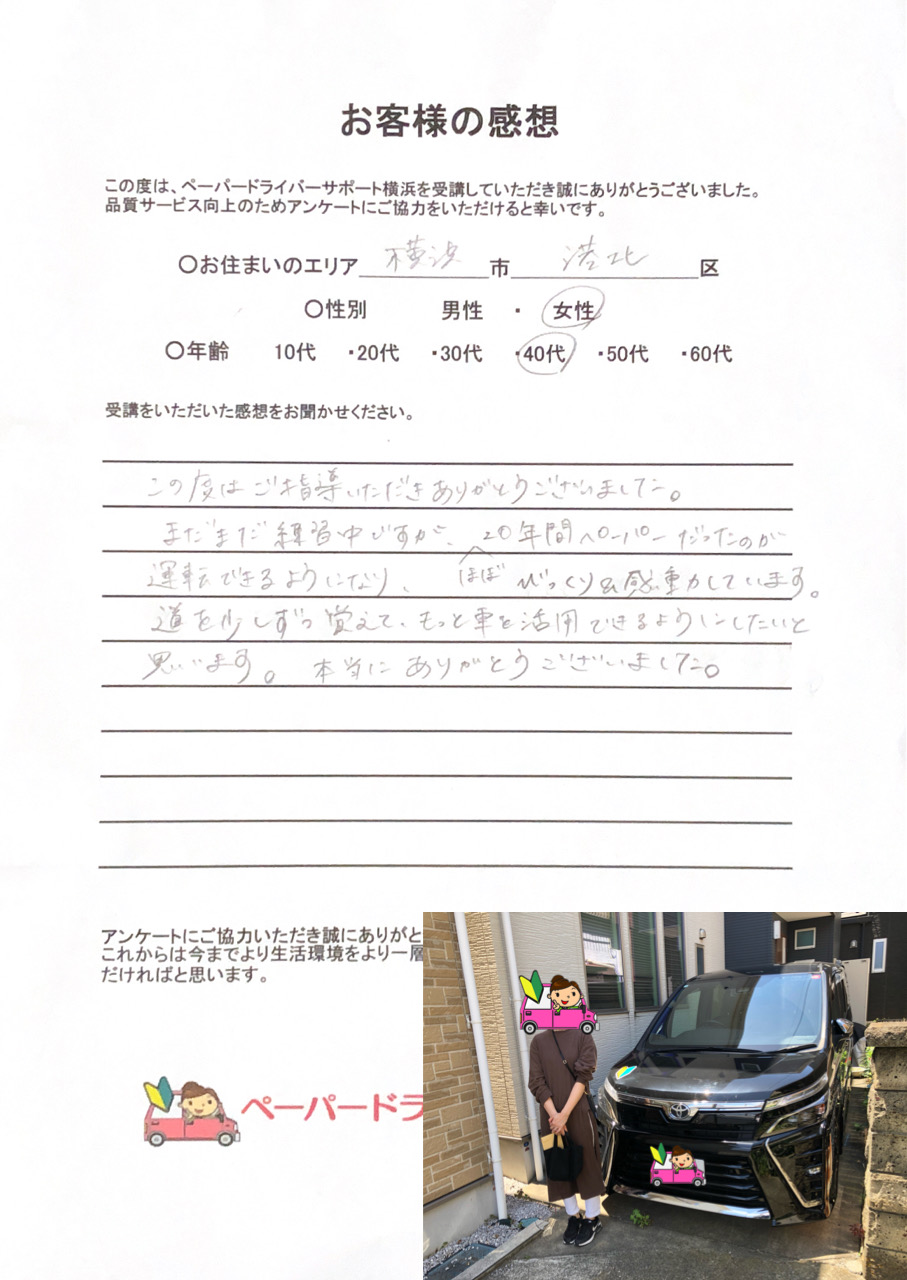 お客様の感想
この度は、ペーパードライバーサポート横浜を受講していただき誠にありがとうございました。
品質サービス向上のためアンケートにご協力をいただけると幸いです。
〇お住まいのエリア 横浜 市 港北 区
〇性別 男性 ・ 女性
〇年齢 10代 ・20代 ・30代 ・40代 ・50代 ・60代
受講をいただいた感想をお聞かせください。
この度はご指導いただきありがとうございました。
まだまだ練習中ですが、20年間ペーパーだったのが
運転できるようになり、 ほぼ びっくり&感動しています。
道を少しずつ覚えて、もっと車を活用できるようにしたいと
思います。 本当にありがとうございました。
アンケートにご協力いただき誠にありがと
これからは今までより生活環境をより一層
だければと思います。
ペーパードラ